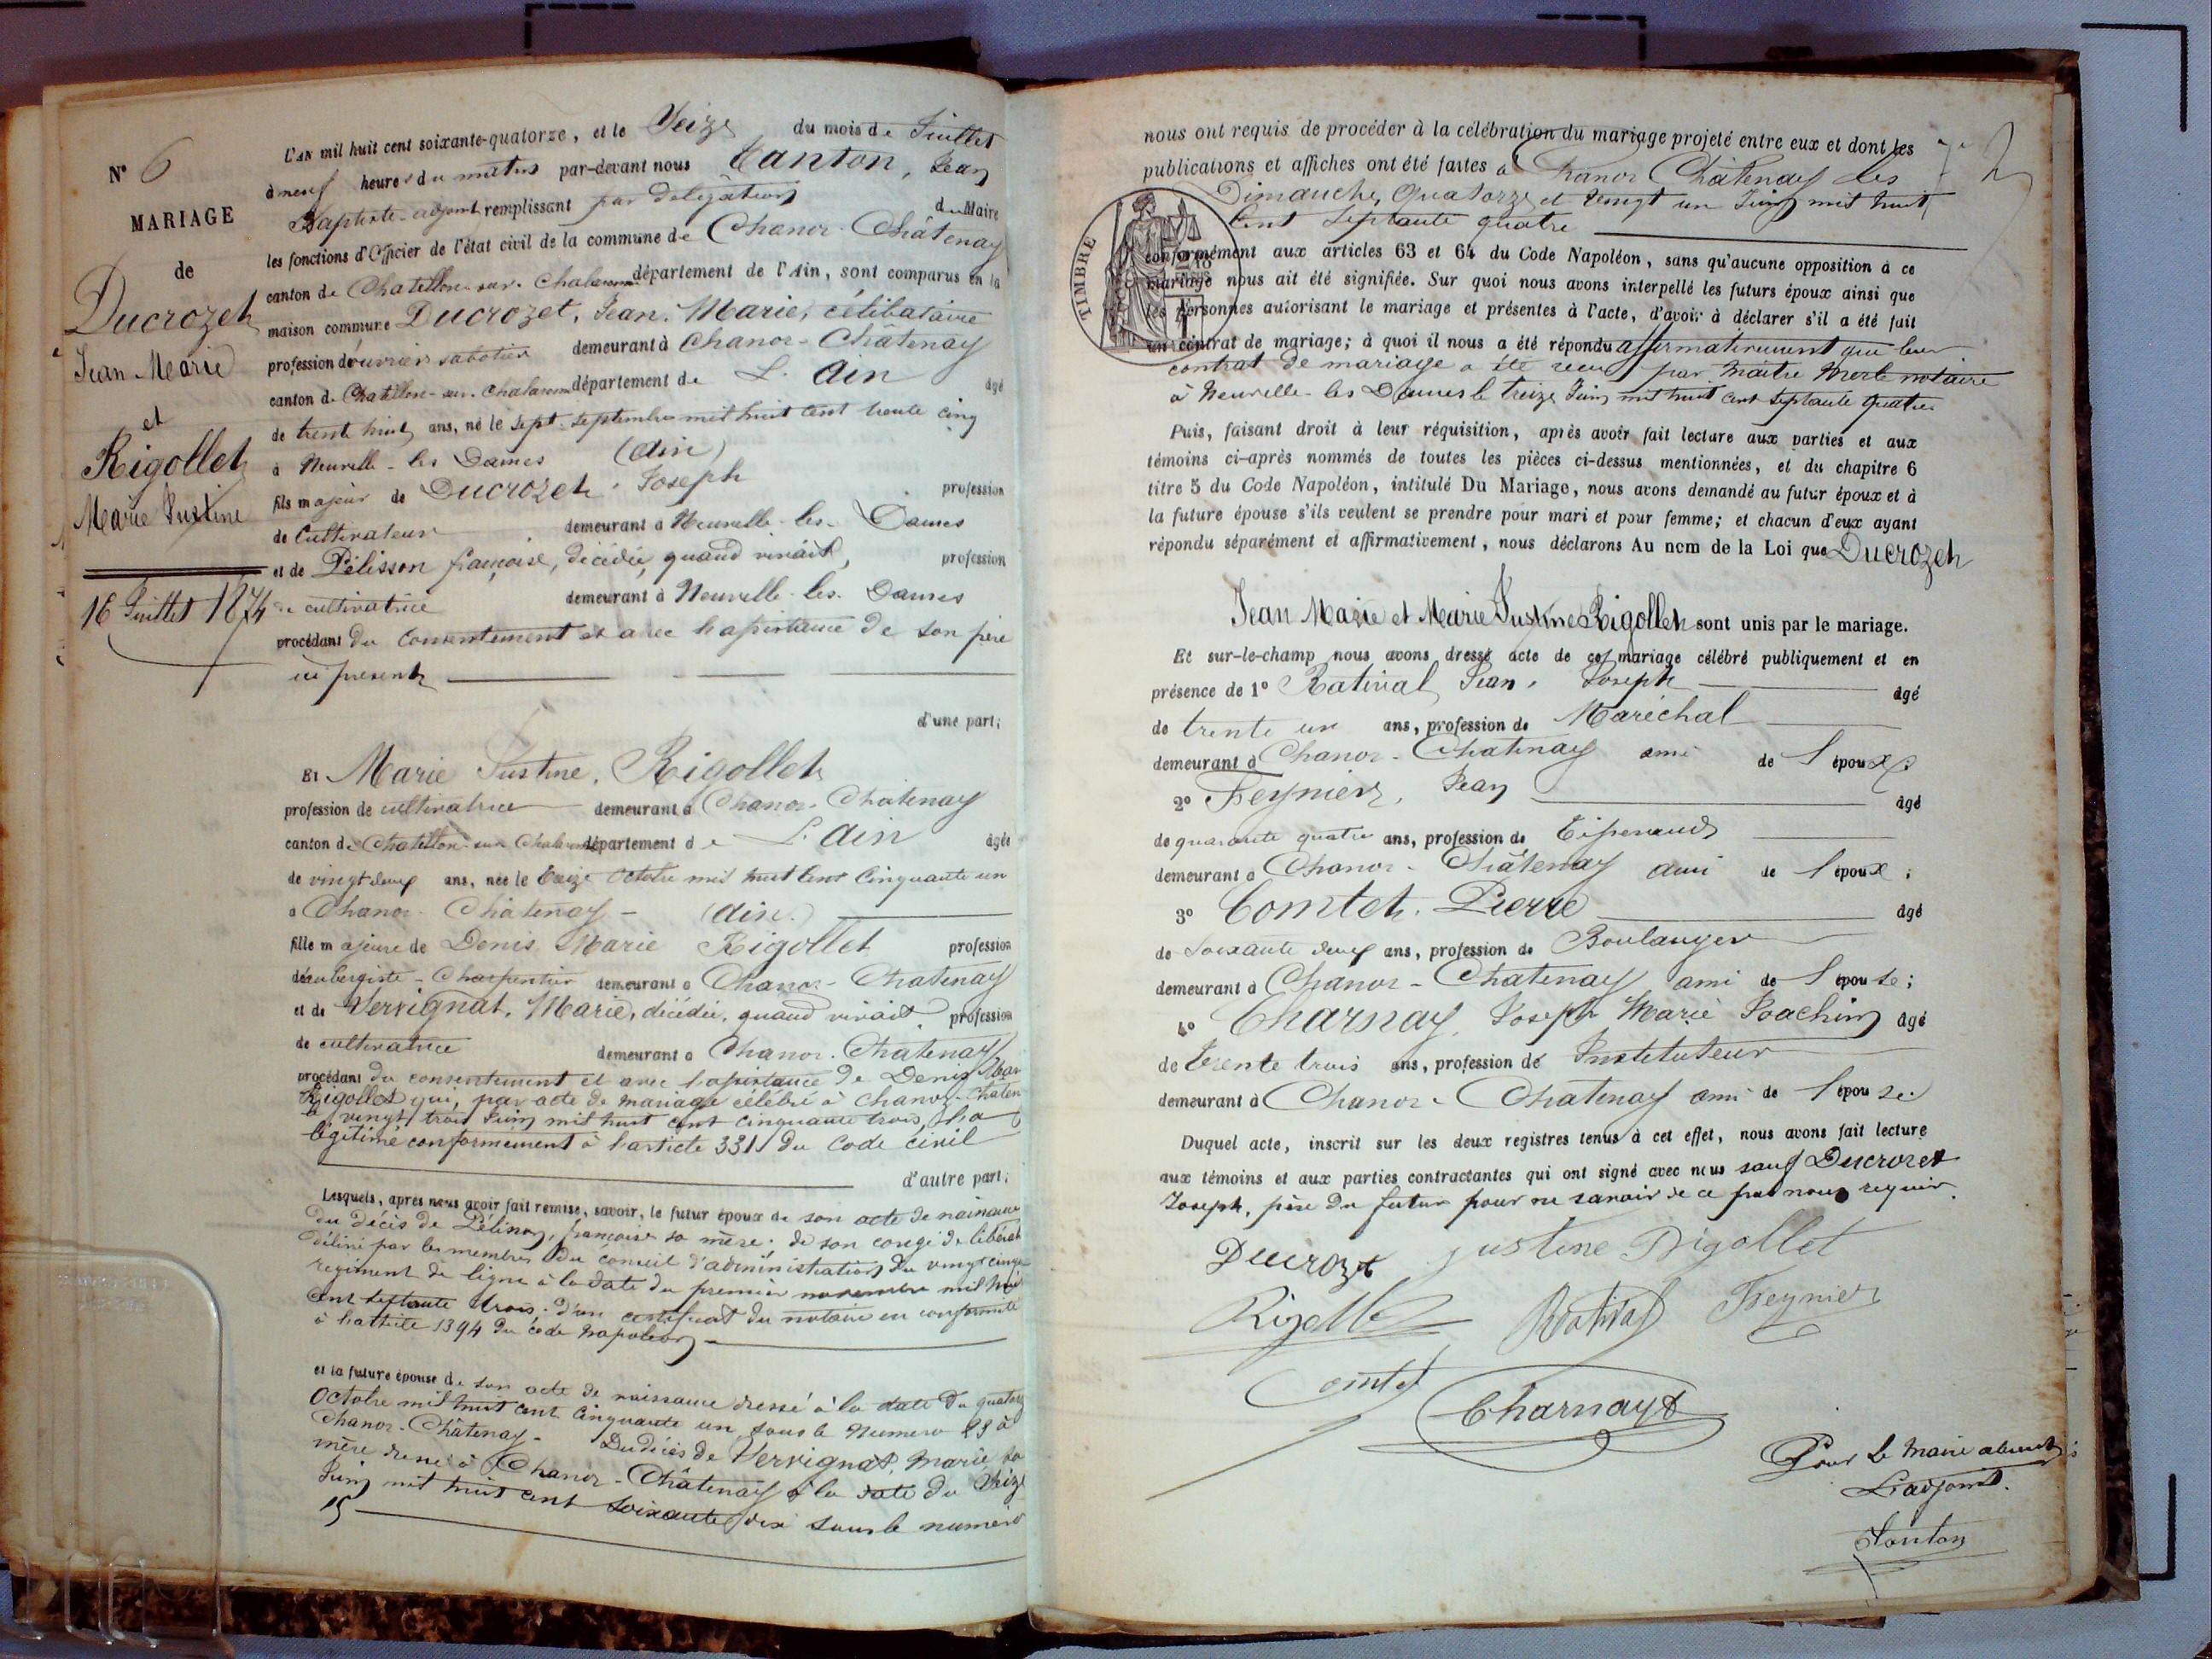 N° 6
MARIAGE
de
Ducrozet
Jean Marie
et
Rigollet
Marie Justine
16 Juillet 1874
L'AN mil huit cent soixante-quatorze, et le Seize du mois de Juillet
à neuf heures du matin par-devant nous Tanton, Jean
Baptiste adjoint remplissant par délégation du Maire
les fonctions d'Officier de l'état civil de la commune de Chanoz-Châtenay
canton de Chatillon-sur-Chalaronne département de l'Ain, sont comparus en la
maison commune Ducrozet, Jean-Marie, célibataire
profession d'ouvrier sabotier demeurant à Chanoz-Châtenay
canton de Chatillon-sur-Chalaronne département de L'Ain âgé
de trente huit ans, né le sept septembre mil huit cent trente cinq
à Neuville-les-Dames (Ain)
fils majeur de Ducrozet Joseph profession
de Cultivateur demeurant à Neuville-les-Dames
et de Pélisson françoise, décédée, quand vivait, profession
de cultivatrice demeurant à Neuville-les-Dames
procédant du consentement et avec l'assistance de son père
ici présent
d'une part;
Et Marie Justine, Rigollet
profession de cultivatrice demeurant à Chanoz-Chatenay
canton de Chatillon-sur-Chalaronne département de L'Ain âgée
de vingt deux ans, née le treize Octobre mil huit cent cinquante un
à Chanoz-Châtenay - (Ain.)
fille majeure de Denis Marie Rigollet profession
d'aubergiste-Charpentier demeurant à Chanoz-Chatenay
et de Vervignat, Marie, décédée, quand vivait profession
de cultivatrice demeurant à Chanoz-Chatenay
procédant du consentement et avec l'assistance de Denis Mar
Rigollet qui, par acte de mariage célébré à Chanoz-Chaten
le vingt trois Juin mil huit cent cinquante trois, l'a
légitimé conformément à l'article 331 du Code civil
d'autre part;
Lesquels, après nous avoir fait remise, savoir, le futur époux de son acte de naissance
du décès de Pélisson, françoise sa mère; de son congé de libérat
délivré par les membres du conseil d'administration du vingt cinq
régiment de ligne à la date du premier novembre mil huit
cent septante trois; d'un certificat du notaire en conformité
à l'article 1394 du code Napoléon
et la future épouse de son acte de naissance dressé à la date du quatorz
Octobre mil huit cent cinquante un sous le Numero 29 à
Chanoz-Châtenay - Du décès de Vervignat, Marie, sa
mère dressé à Chanoz-Châtenay à la date du Seize
Juin mil huit cent soixante dix sous le numéro
15
nous ont requis de procéder à la célébration du mariage projeté entre eux et dont les
publications et affiches ont été faites à Chanoz Châtenay les
Dimanche, Quatorze et vingt un Juin mil huit
Cent Septante quatre
TIMBRE
conformément aux articles 63 et 64 du Code Napoléon, sans qu'aucune opposition à ce
mariage nous ait été signifiée. Sur quoi nous avons interpellé les futurs époux ainsi que
les personnes autorisant le mariage et présentes à l'acte, d'avoir à déclarer s'il a été fait
un contrat de mariage; à quoi il nous a été répondu affirmativement que leur
contrat de mariage a été reçu par Maître Merle notaire
à Neuville-les-Dames le treize Juin mil huit cent septante quatre
Puis, faisant droit à leur réquisition, après avoir fait lecture aux parties et aux
témoins ci-après nommés de toutes les pièces ci-dessus mentionnées, et du chapitre 6
titre 5 du Code Napoléon, intitulé Du Mariage, nous avons demandé au futur époux et à
la future épouse s'ils veulent se prendre pour mari et pour femme; et chacun d'eux ayant
répondu séparément et affirmativement, nous déclarons Au nom de la Loi que Ducrozet
Jean Marie et Marie Justine Rigollet sont unis par le mariage.
Et sur-le-champ nous avons dressé acte de ce mariage célébré publiquement et en
présence de 1° Rativat, Jean, Joseph âgé
de trente un ans, profession de Maréchal
demeurant à Chanoz-Chatenay ami de l'époux;
2° Feynier, Jean âgé
de quarante quatre ans, profession de Tisserand
demeurant à Chanoz-Châtenay ami de l'époux;
3° Comtet, Pierre âgé
de soixante deux ans, profession de Boulanger
demeurant à Chanoz-Chatenay ami de l'épouse;
4° Charnay, Joseph Marie Joachim âgé
de trente trois ans, profession de Instituteur
demeurant à Chanoz-Chatenay ami de l'épouse.
Duquel acte, inscrit sur les deux registres tenus à cet effet, nous avons fait lecture
aux témoins et aux parties contractantes qui ont signé avec nous sauf Ducrozet
Joseph, père du futur pour ne savoir de ce par nous requis.
Ducrozet Justine Rigollet
Rigollet Rativat Feynier
Comtet
Charnay
Pour le Maire absent;
L'adjoint.
Tanton